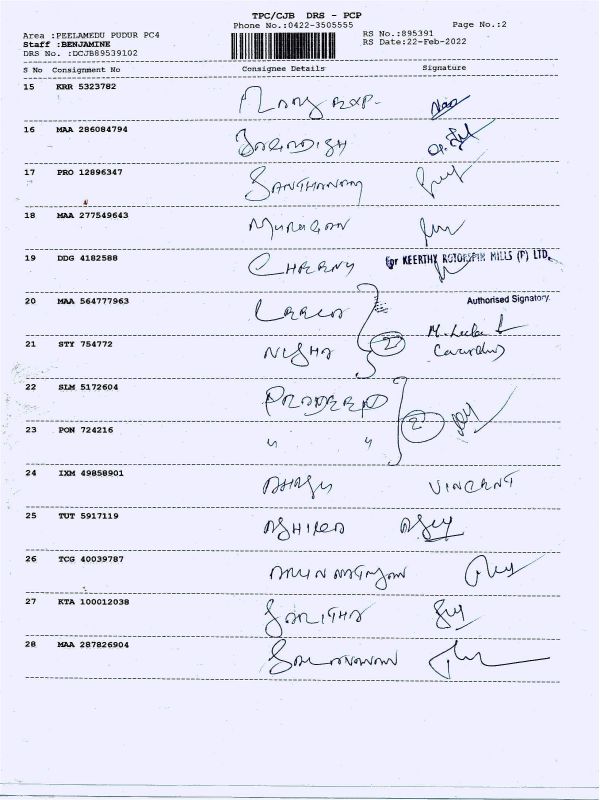 TPC/CJB DRS - PCP
Phone No.:0422-3505555 Page No.:2
Area :PEELAMEDU PUDUR PC4 RS No.:895391
Staff :BENJAMINE RS Date:22-Feb-2022
DRS No. :DCJB89539102
S No Consignment No Consignee Details Signature
15 KRR 5323782
16 MAA 286084794 JAGADISH
17 PRO 12896347 SANTHANAM
18 MAA 277549643 MURUGAN
19 DDG 4182588 CHERNY for KEERTHY ROTORSPIN MILLS (P) LTD.
20 MAA 564777963 LEELA Authorised Signatory.
21 STY 754772 NISHA 2 M. Leela
22 SLM 5172604 PRADEEP
23 PON 724216 " " 2
24 IXM 49858901 VINCENT
25 TUT 5917119
26 TCG 40039787
27 KTA 100012038 SARITHA
28 MAA 287826904 SARAVANAN